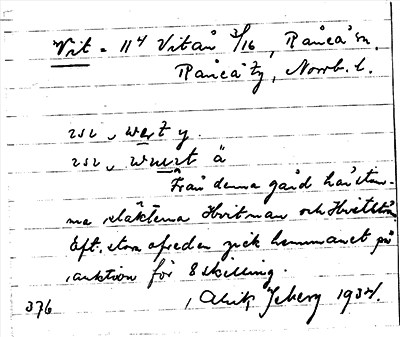 Vit = 11⁴ Vitån 2/16, Råneå sn.
Råneå tg, Norrb. l.
232, wert y.
232, wuert ä
Från denna gård här stam-
ma släkterna Hvitman och Hvitström
Eft. stora ofreden gick hemmanet på
auktion för 8 skilling.
376
1934.